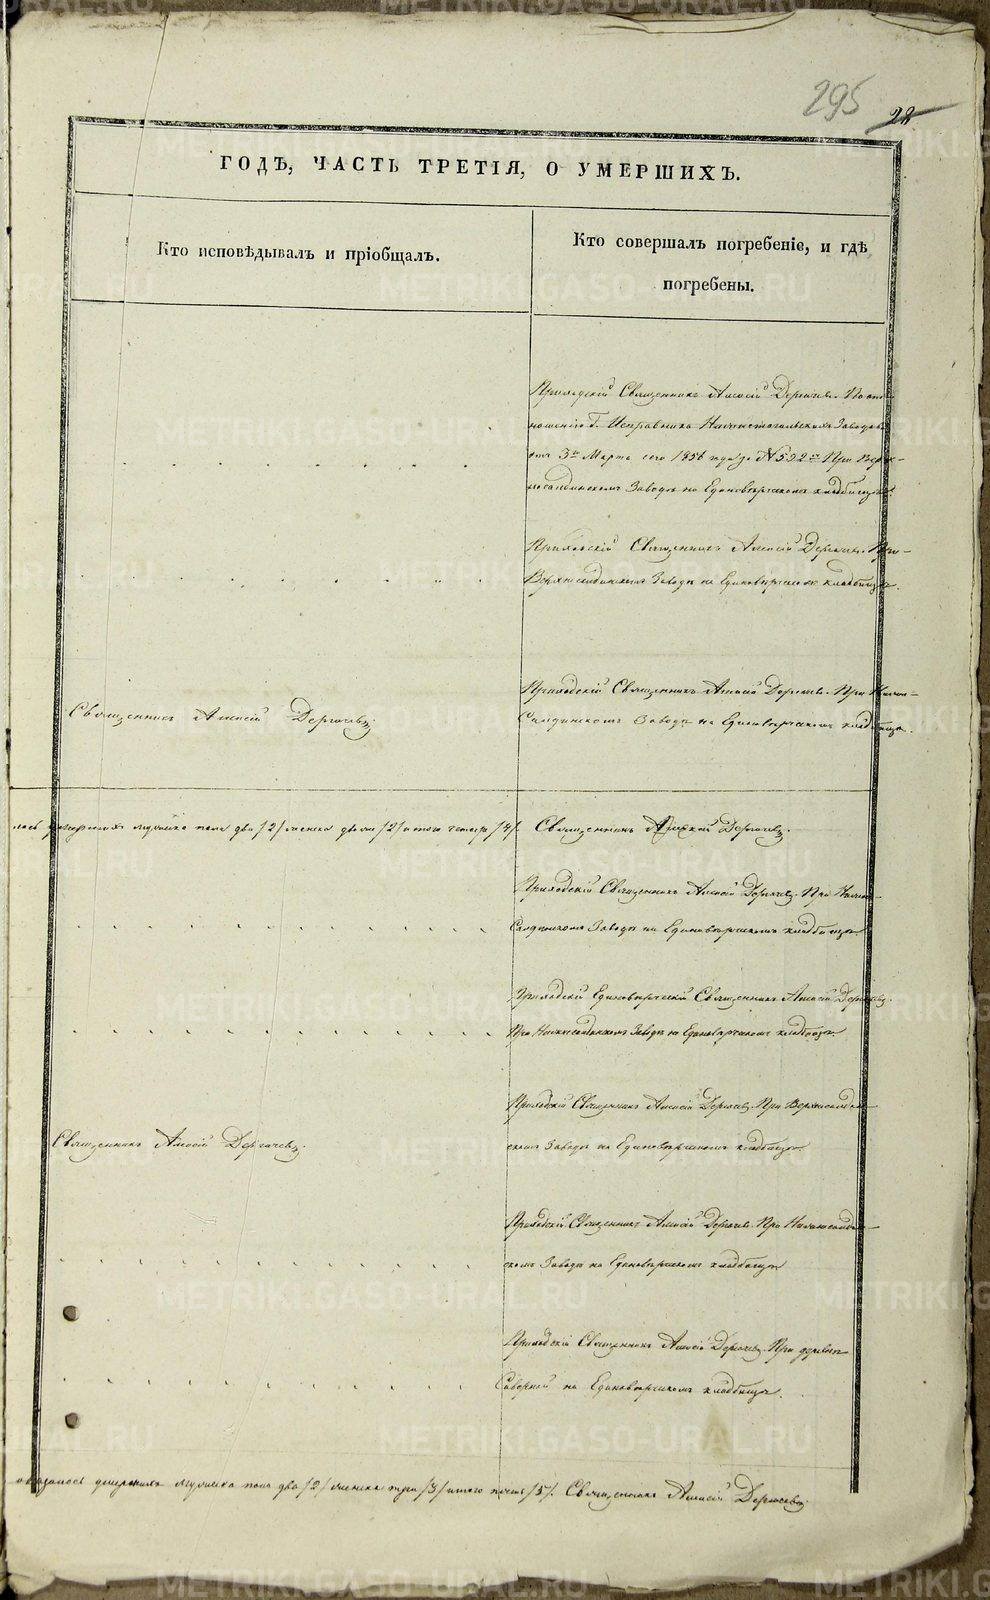 295
28
ГОДЪ, ЧАСТЬ ТРЕТІЯ, О УМЕРШИХЪ.
Кто исповѣдывалъ и пріобщалъ.
Кто совершалъ погребеніе, и гдѣ
погребены.
Приходскій Священникъ Амосій Дергачевъ. По отно-
шенію Г. Исправника Нижнетагильскихъ Заводовъ
отъ 3го Марта сего 1856 года № 592. При Верх-
несалдинскомъ Заводѣ на Единовѣрческомъ кладбищѣ.
Приходскій Священникъ Амосій Дергачевъ. При
Верхнесалдинскомъ Заводѣ на Единовѣрческомъ кладбищѣ.
Священникъ Амосій Дергачевъ.
Приходскій Священникъ Амосій Дергачевъ. При Нижне-
Салдинскомъ Заводѣ на Единовѣрческомъ кладбищѣ.
умершихъ мужеска пола два /2/ женска двѣ /2/ итого четыре /4/. Священникъ Дергачевъ.
Приходскій Священникъ Амосій Дергачевъ. При Нижне-
Салдинскомъ Заводѣ на Единовѣрческомъ кладбищѣ.
Приходскій Единовѣрческій Священникъ Амосій Дергачевъ.
При Нижнесалдинскомъ Заводѣ на Единовѣрческомъ кладбищѣ.
Священникъ Амосій Дергачевъ.
Приходскій Священникъ Амосій Дергачевъ. При Верхнесалдин-
скомъ Заводѣ на Единовѣрческомъ кладбищѣ.
Приходскій Священникъ Амосій Дергачевъ. При Нижнесалдин-
скомъ Заводѣ на Единовѣрческомъ кладбищѣ
Приходскій Священникъ Амосій Дергачевъ. При деревнѣ
Северной на Единовѣрческомъ кладбищѣ.
оказалось умершихъ мужеска пола два /2/ женска три /3/ итого пять /5/. Священникъ Амосій Дергачевъ.
METRIKI.GASO-URAL.RU